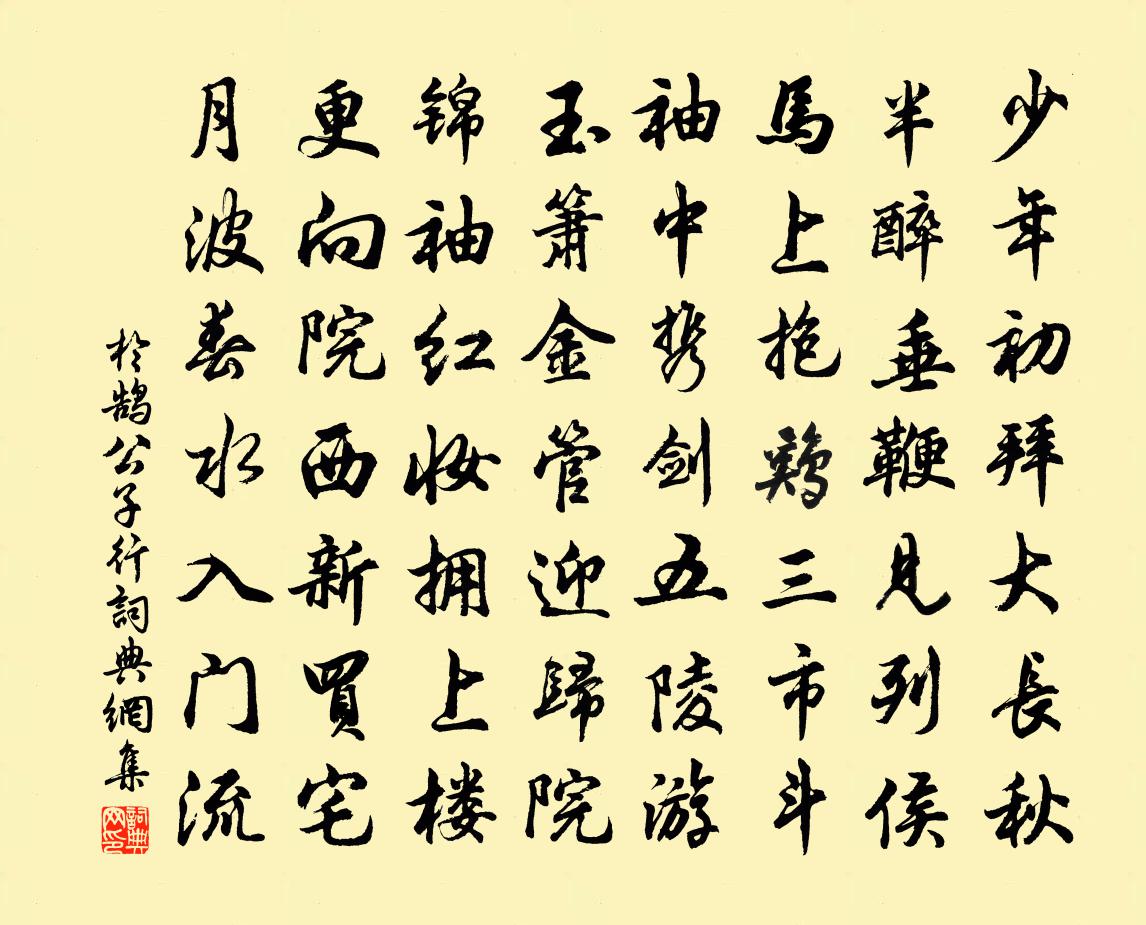 少年初拜大長秋
半醉垂鞭見列侯
馬上抱鷄三市斗
袖中携剑五陵游
玉箫金管迎歸院
锦袖红妆拥上楼
更向院西新買宅
月波春水入门流
於鹄公子行詞典網集
詞典网印